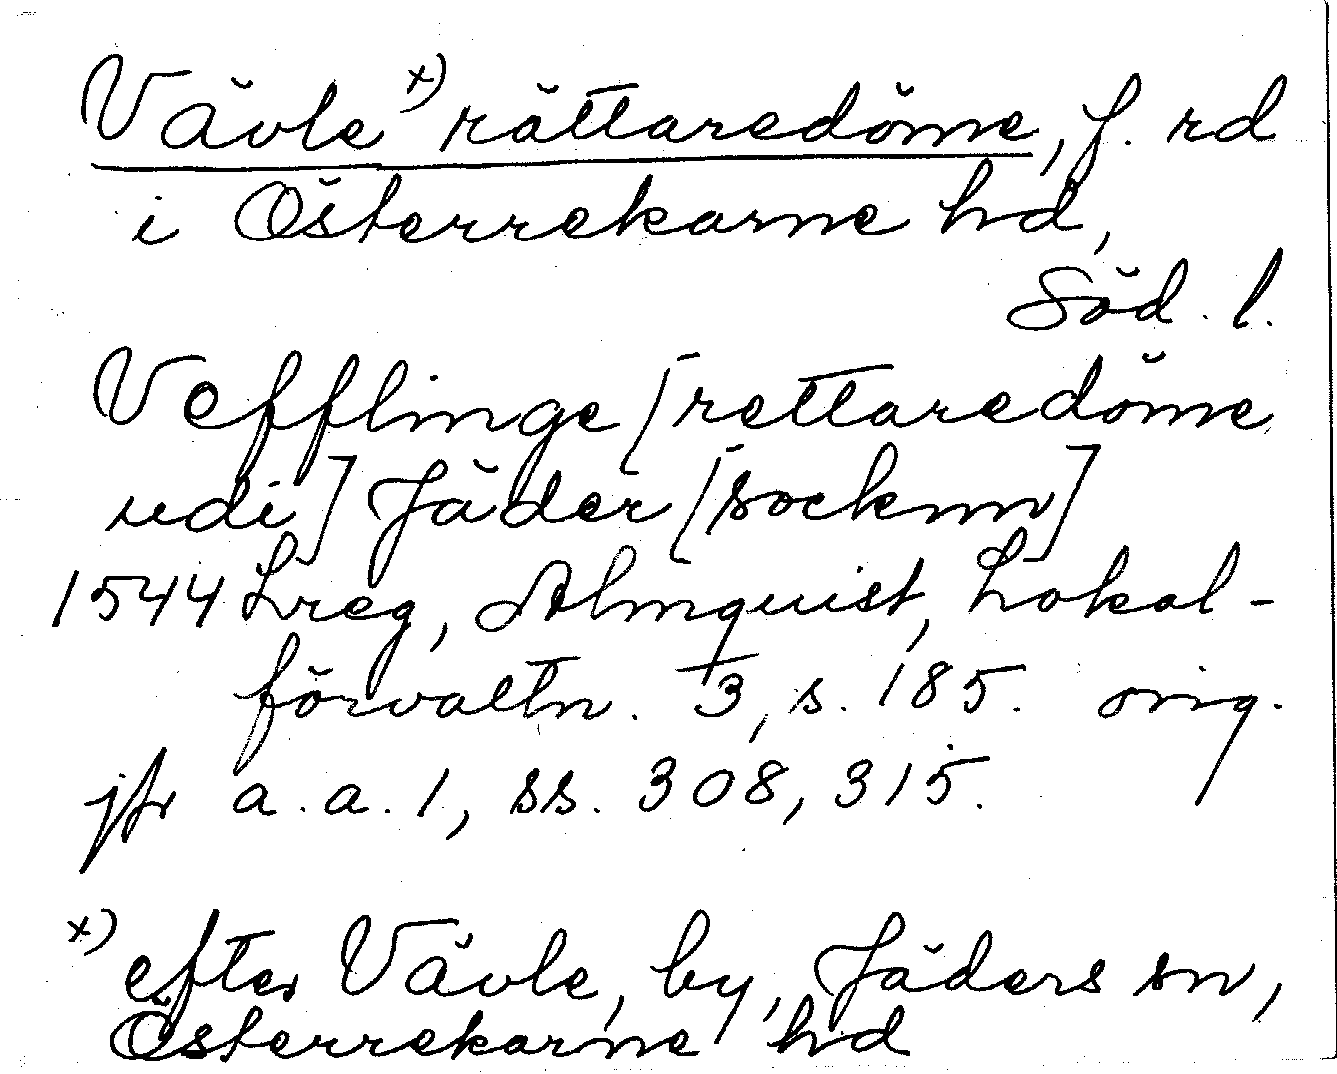 Vävle x) rättaredöme, f. rd
i Österrekarne hd,
Söd. l.
Vefflinge [rettaredöme
udi] Jäder [socknn]
1544 Lreg, Almquist, Lokal-
förvaltn. 3, s. 185. orig.
jfr a.a. 1, ss. 308, 315.
x) efter Vävle, by, Jäders sn,
Österrekarne hd